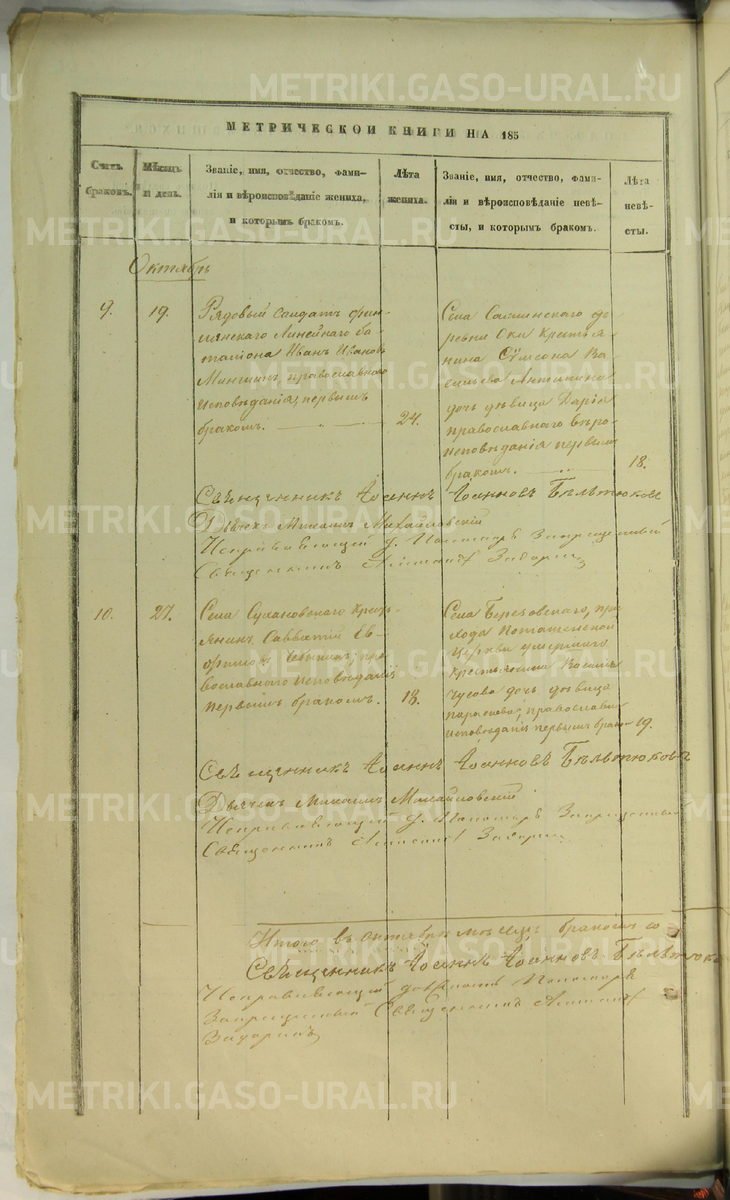 METRIKI.GASO-URAL.RU
МЕТРИЧЕСКОЙ КНИГИ НА 185
Счетъ браковъ.
Мѣсяцъ и день.
Званіе, имя, отчество, фами-
лія и вѣроисповѣданіе жениха,
и которымъ бракомъ.
Лѣта жениха.
Званіе, имя, отчество, фами-
лія и вѣроисповѣданіе невѣ-
сты, и которымъ бракомъ.
Лѣта невѣ-
сты.
Октябрь
9.
19.
Рядовый солдатъ фин-
лянскаго Линейнаго ба-
таліона Иванъ Ивановъ
православнаго
исповѣданія, первымъ
бракомъ.
24.
Села
ревни Ски Крестья-
нина Сѵмеона Ва-
сильева Антипина
дочь дѣвица Дарія
православнаго вѣро
исповѣданія первымъ
бракомъ.
18.
Священникъ Іоаннъ Іоанновъ Бѣльтюковъ
Дьячекъ Михаилъ Михайловскій
Исправляющій д. Пономаря Запрещенный
Священникъ
10.
27.
Села Сухановскаго Кресть-
янинъ Савватій Ев-
пра-
вославнаго исповѣданія
первымъ бракомъ.
18.
Села Березовскаго, при-
хода Поташенской
Церкви умершаго
крестьянина
Чусова дочь дѣвица
православнаго
исповѣданія первымъ бракомъ
19.
Священникъ Іоаннъ Іоанновъ Бѣльтюковъ
Дьячекъ Михаилъ Михайловскій
Исправляющій д. Пономаря Запрещенный
Священникъ
Итого въ октябрѣ мѣсяцѣ браковъ 10
Священникъ Іоаннъ Іоанновъ Бѣльтюковъ
Исправляющій должность Пономаря
Запрещенный Священникъ